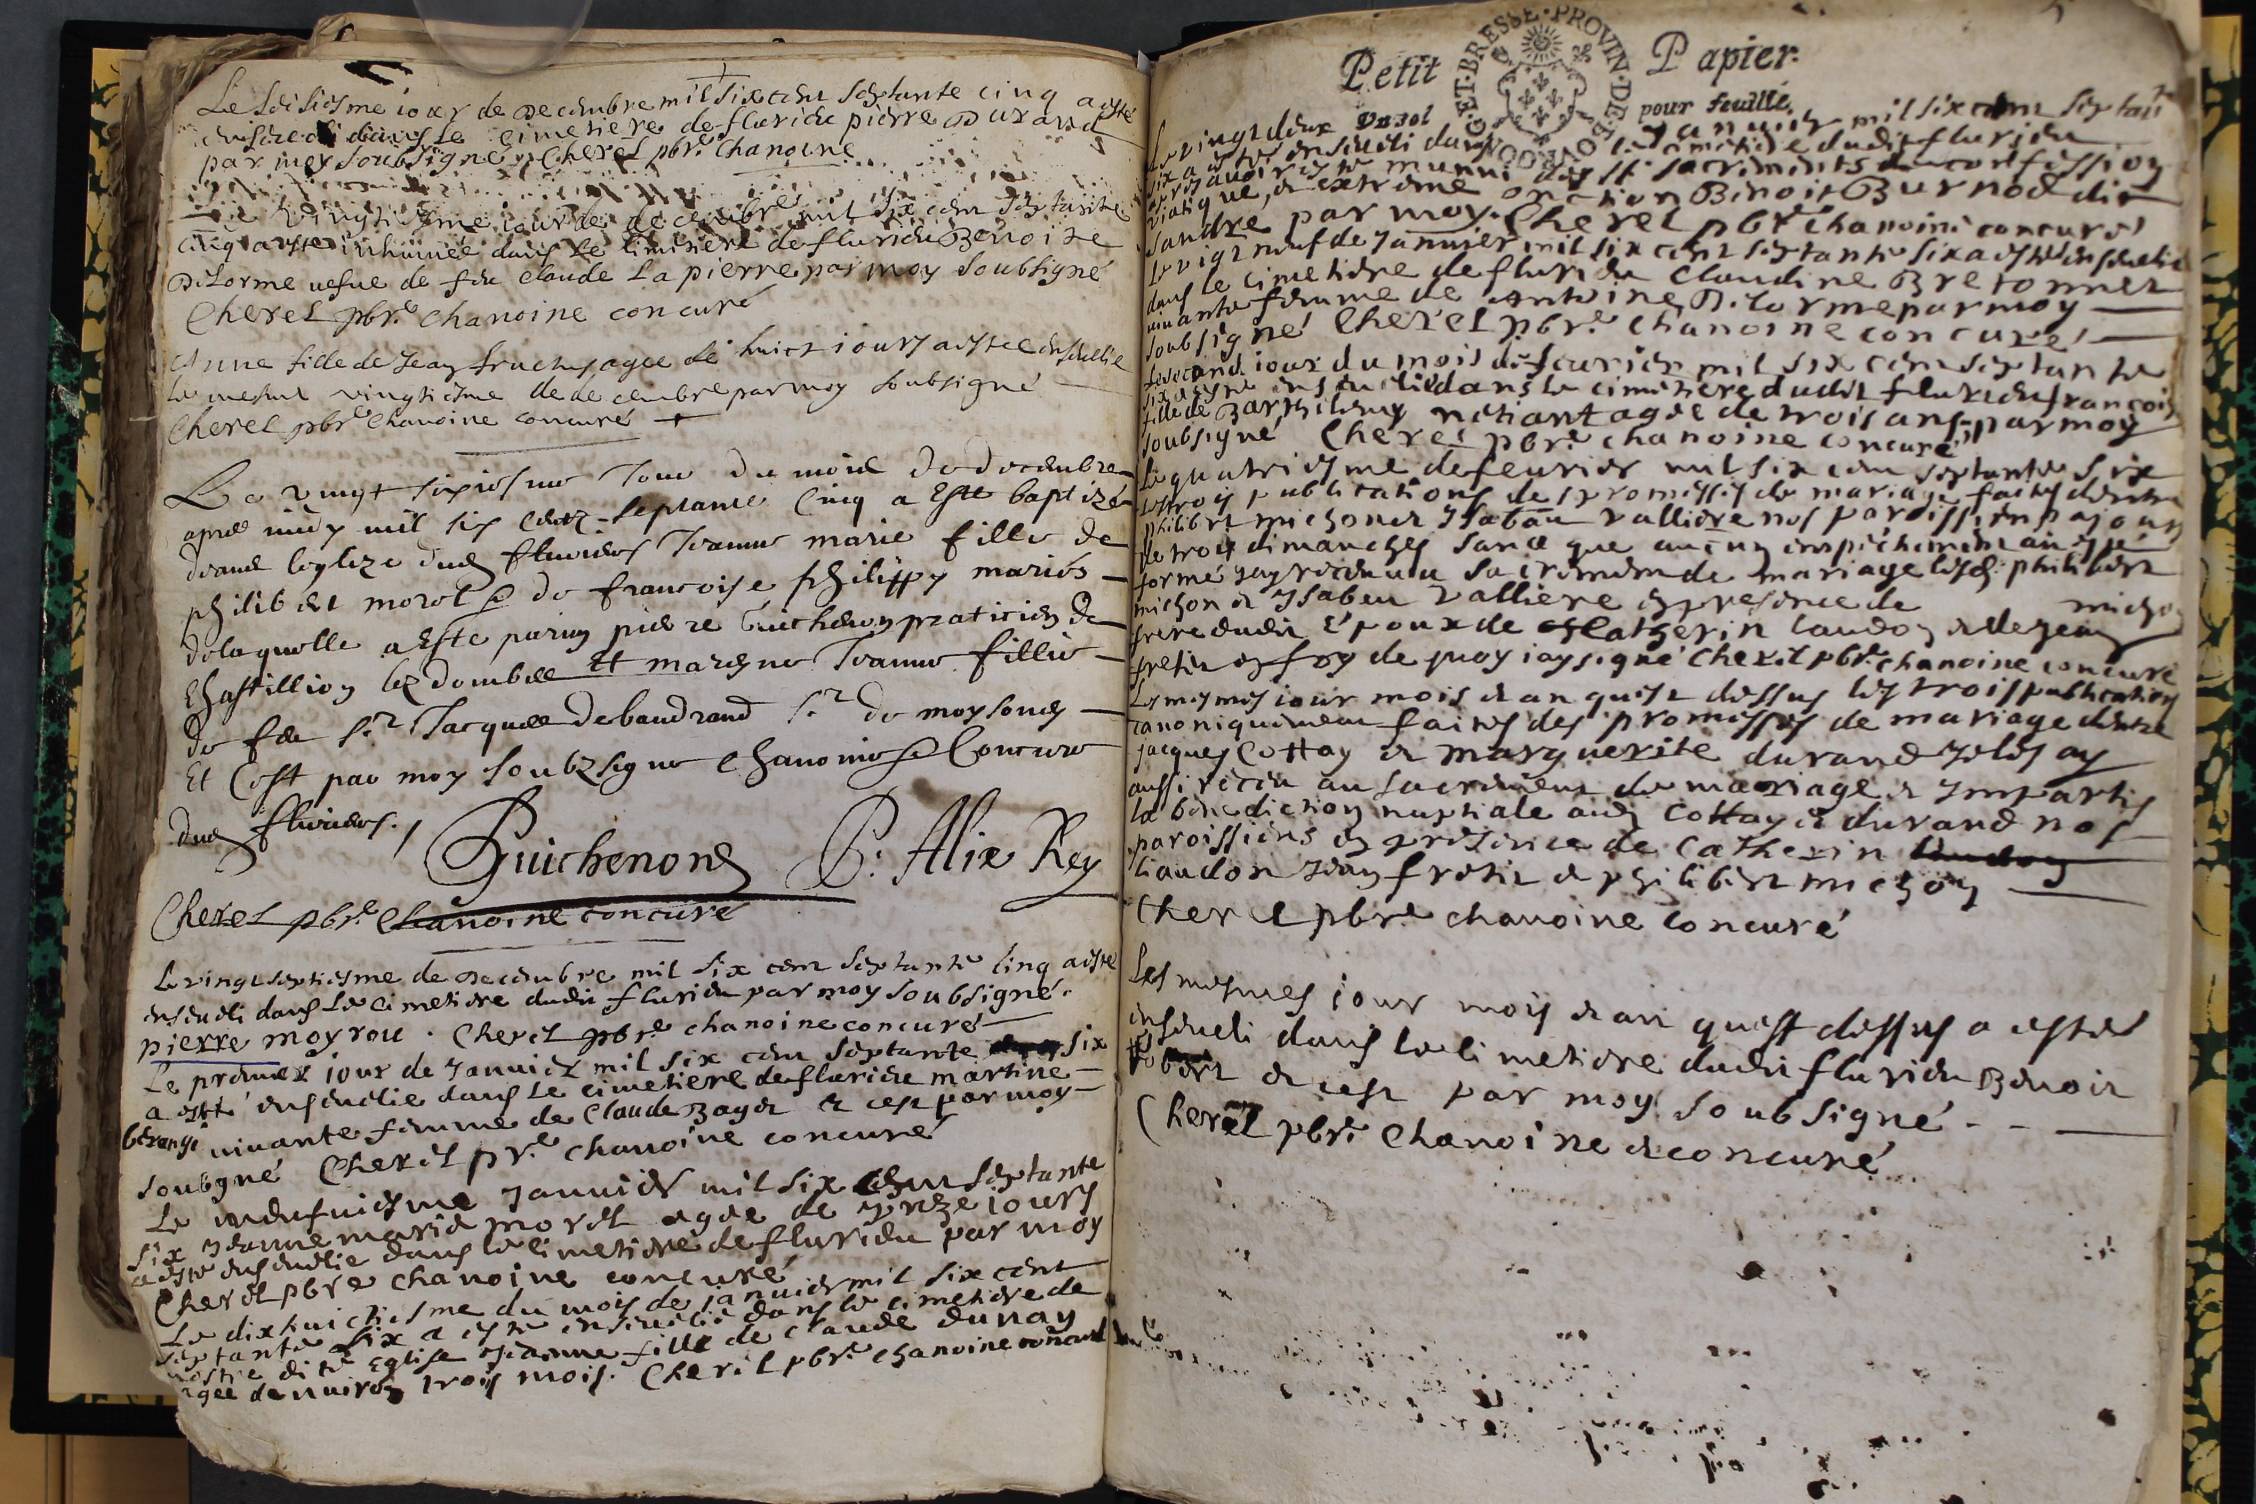 Le seisiesme iour de Decembre mil six cent septante cinq a esté
enseveli dans le cimetiere de flurieu pierre Durand
par moy soubsigné Cherel pbre. chanoine
Le vingtiesme iour de decembre mil six cent septante
cinq a esté inhumée dans le cimitiere de flurieu Benoite
Delorme vefve de feu claude Lapierre par moy soubsigné
Cherel pbre. chanoine concuré
Anne fille de Jean fruchy agee de huict iours a estee ensevelie
le mesme vingtiesme de decembre par moy soubsigné
Cherel pbre chanoine concuré
Le vingt sixiesme Jour du mois de decembre
apres midy mil six cent septante Cinq a Esté baptizé
devant leglize dud fluriers Jeanne marie fille de
philibert morel & de francoise philippy mariés
de laquelle a Esté parin pierre Guichenon praticien de
Chastillion les dombes Et marene Jeanne fillie
de feu sr. Jacques debaudrand sr. de moysond
Et C'est par moy soubzsigne chanoine & Concuré
dud fluriers.
Guichenon P. Alix Rey
Cherel pbre. chanoine concuré
Le vingt septiesme de Decembre mil six cent septante cinq a esté
enseveli dans le cimetiere dudit flurieu par moy soubsigné.
pierre moyrou. Cherel pbre chanoine concuré
Le premier iour de Janvier mil six cent septante six
a esté ensevelie dans le cimetiere de flurieu martine
berangé vivante femme de Claude Bayet et cest par moy
soubgné Cherel pr.e chanoine concuré
Le neufviesme Janvier mil six cent septante
six Jeanne marie morel agée de treze iours
a esté ensevelie dans le cimetiere de flurieu par moy
Cherel pbre chanoine concuré
Le dix huictiesme du mois de janvier mil six cent
septante six a esté ensevelie dans le cimetiere de
nostre dite Eglise Jeanne fille de claude dunay
agee denviron trois mois. Cherel pbre. chanoine concuré
Petit Papier.
GET·BRESSE·PROVIN·DE·BOVRGOG
Un sol pour feuille.
Le vingt deux Janvier mil six cent septante
six a esté enseveli dans le cimetiere dudit flurieu
apres avoir esté munni des st sacrements de confession
viatique, et extreme onction Benoit Burnod dit
sandre par moy. Cherel pbre chanoine concuré
Le vigt neuf de Janvier mil six cent septante six a esté ensevelie
dans le cimetiere de flurieu Claudine Bretonnet
vivante femme de Antoine Delorme par moy
soubsigné Cherel pbre. chanoine concuré
Le second iour du mois de fevrier mil six cent septante
six a esté ensevelie dans le cimitiere dudit flurieu francoise
fille de Barthelemy netiant agée de trois ans par moy
soubsigné Cherel pbre. chanoine concuré
Le quatriesme de fevrier mil six cent septante six
les trois publications des promesses de mariage faites dentre
philibert michon et Ysabau valliere nos paroissiens a jour
de trois dimanches sans que aucun empechement aye esté
formé jay receu au sacrement de mariage lesd. philibert
michon et Ysabeu valliere en presence de michon
frere dudit Époux de Catherin laudon et de jean
fretit en foy de quoy iay signé Cherel pbre. chanoine concuré
Les mesmes iour mois et an quest dessus les trois publications
canoniquement faites des promesses de mariage dentre
jacques Cottay et marguerite durand Je les ay
aussi receu au sacrement de mariage et Impartis
la benediction nuptiale aud Cottay et durand nos
paroissiens en presence de Catherin
liaudon Jean fretit et philibert michon
Cherel pbre chanoine concuré
Les mesmes iour mois et an quest dessus a esté
enseveli dans le cimetiere dudit flurieu Benoit
et cest par moy soubsigné
Cherel pbre. chanoine et concuré